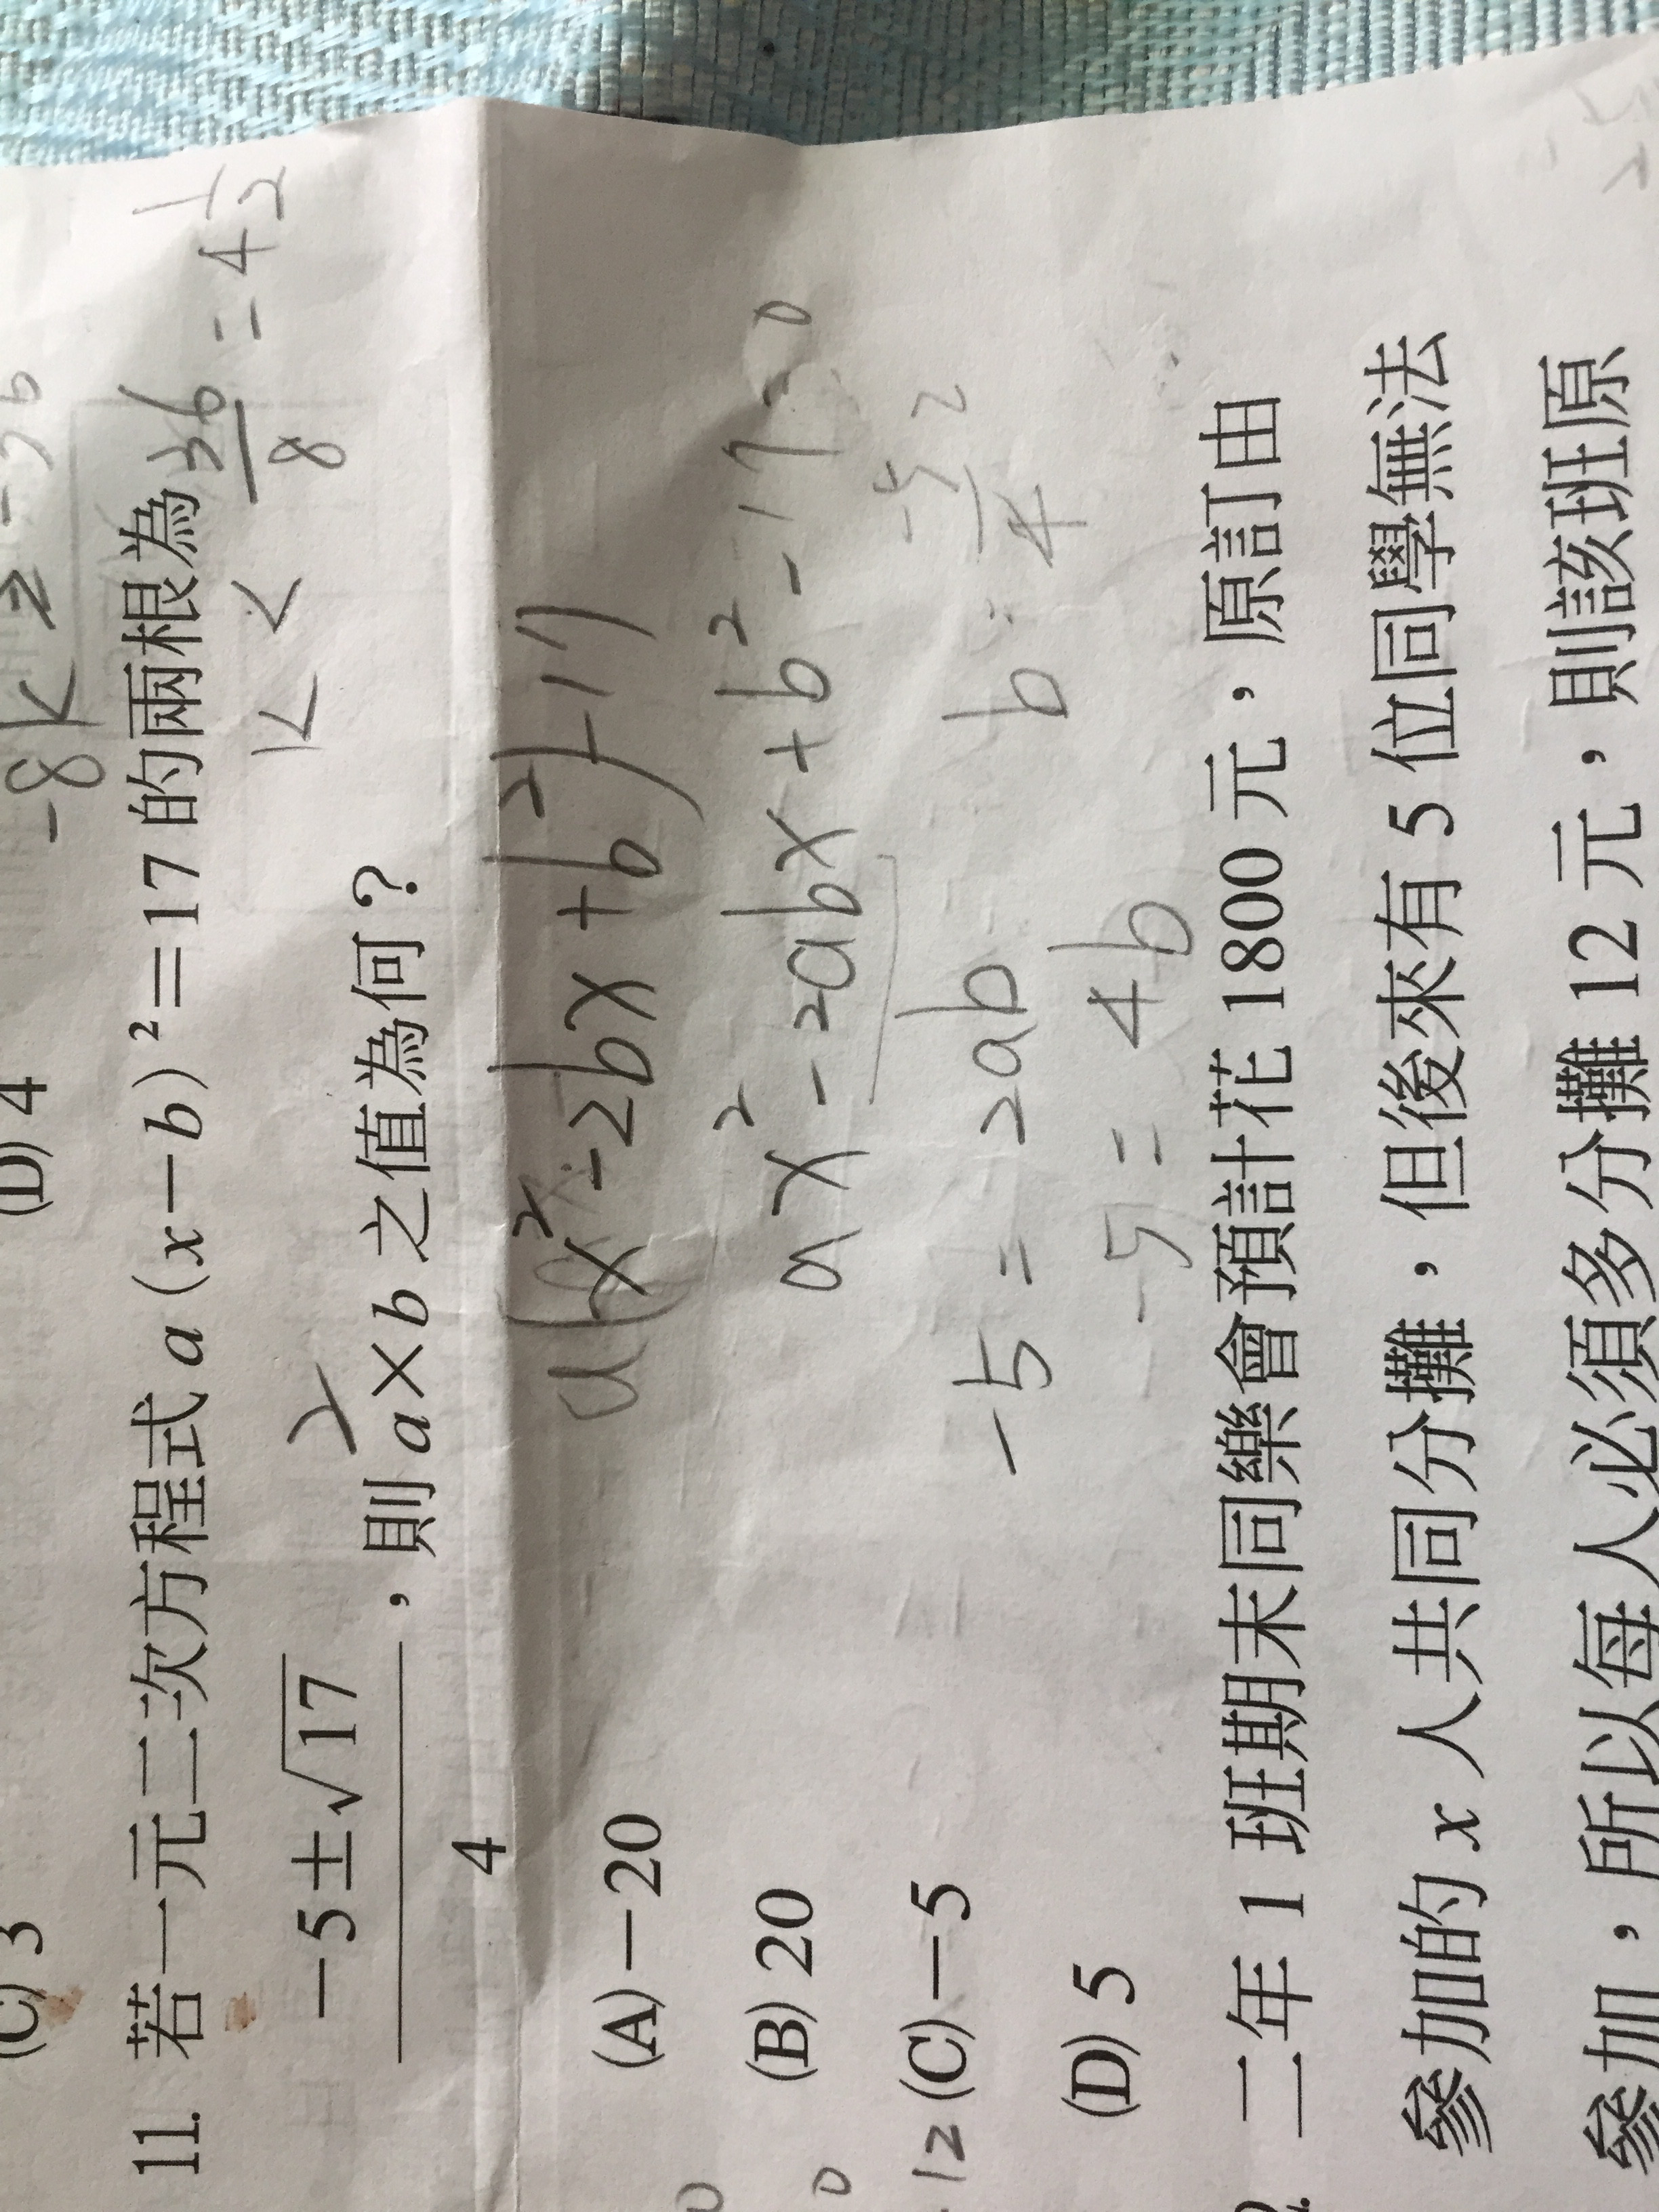 -8
k≥-36
(C) 3
(D) 4
11. 若一元二次方程式 a（x－b）²＝17 的兩根為
36/8 = 4 1/2
k <
－5±√17
4
，則 a×b 之值為何？
(A)－20
a(x²-2bx+b²)-17
(B) 20
ax²-2abx+b²-17=0
12
(C)－5
-5=2ab
b=-5/4
2
(D) 5
-5=4b
二年 1 班期末同樂會預計花 1800 元，原訂由
參加的 x 人共同分攤，但後來有 5 位同學無法
參加，所以每人必須多分攤 12 元，則該班原